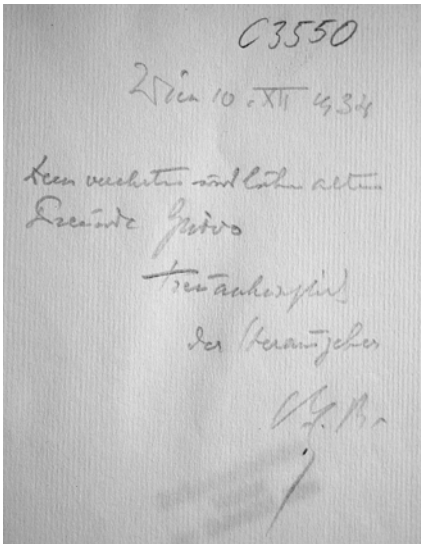 C3550
Wien 10. XII 1934
Dem verehrten und lieben alten
Freunde Guido
freundschaftlichst
der Herausgeber